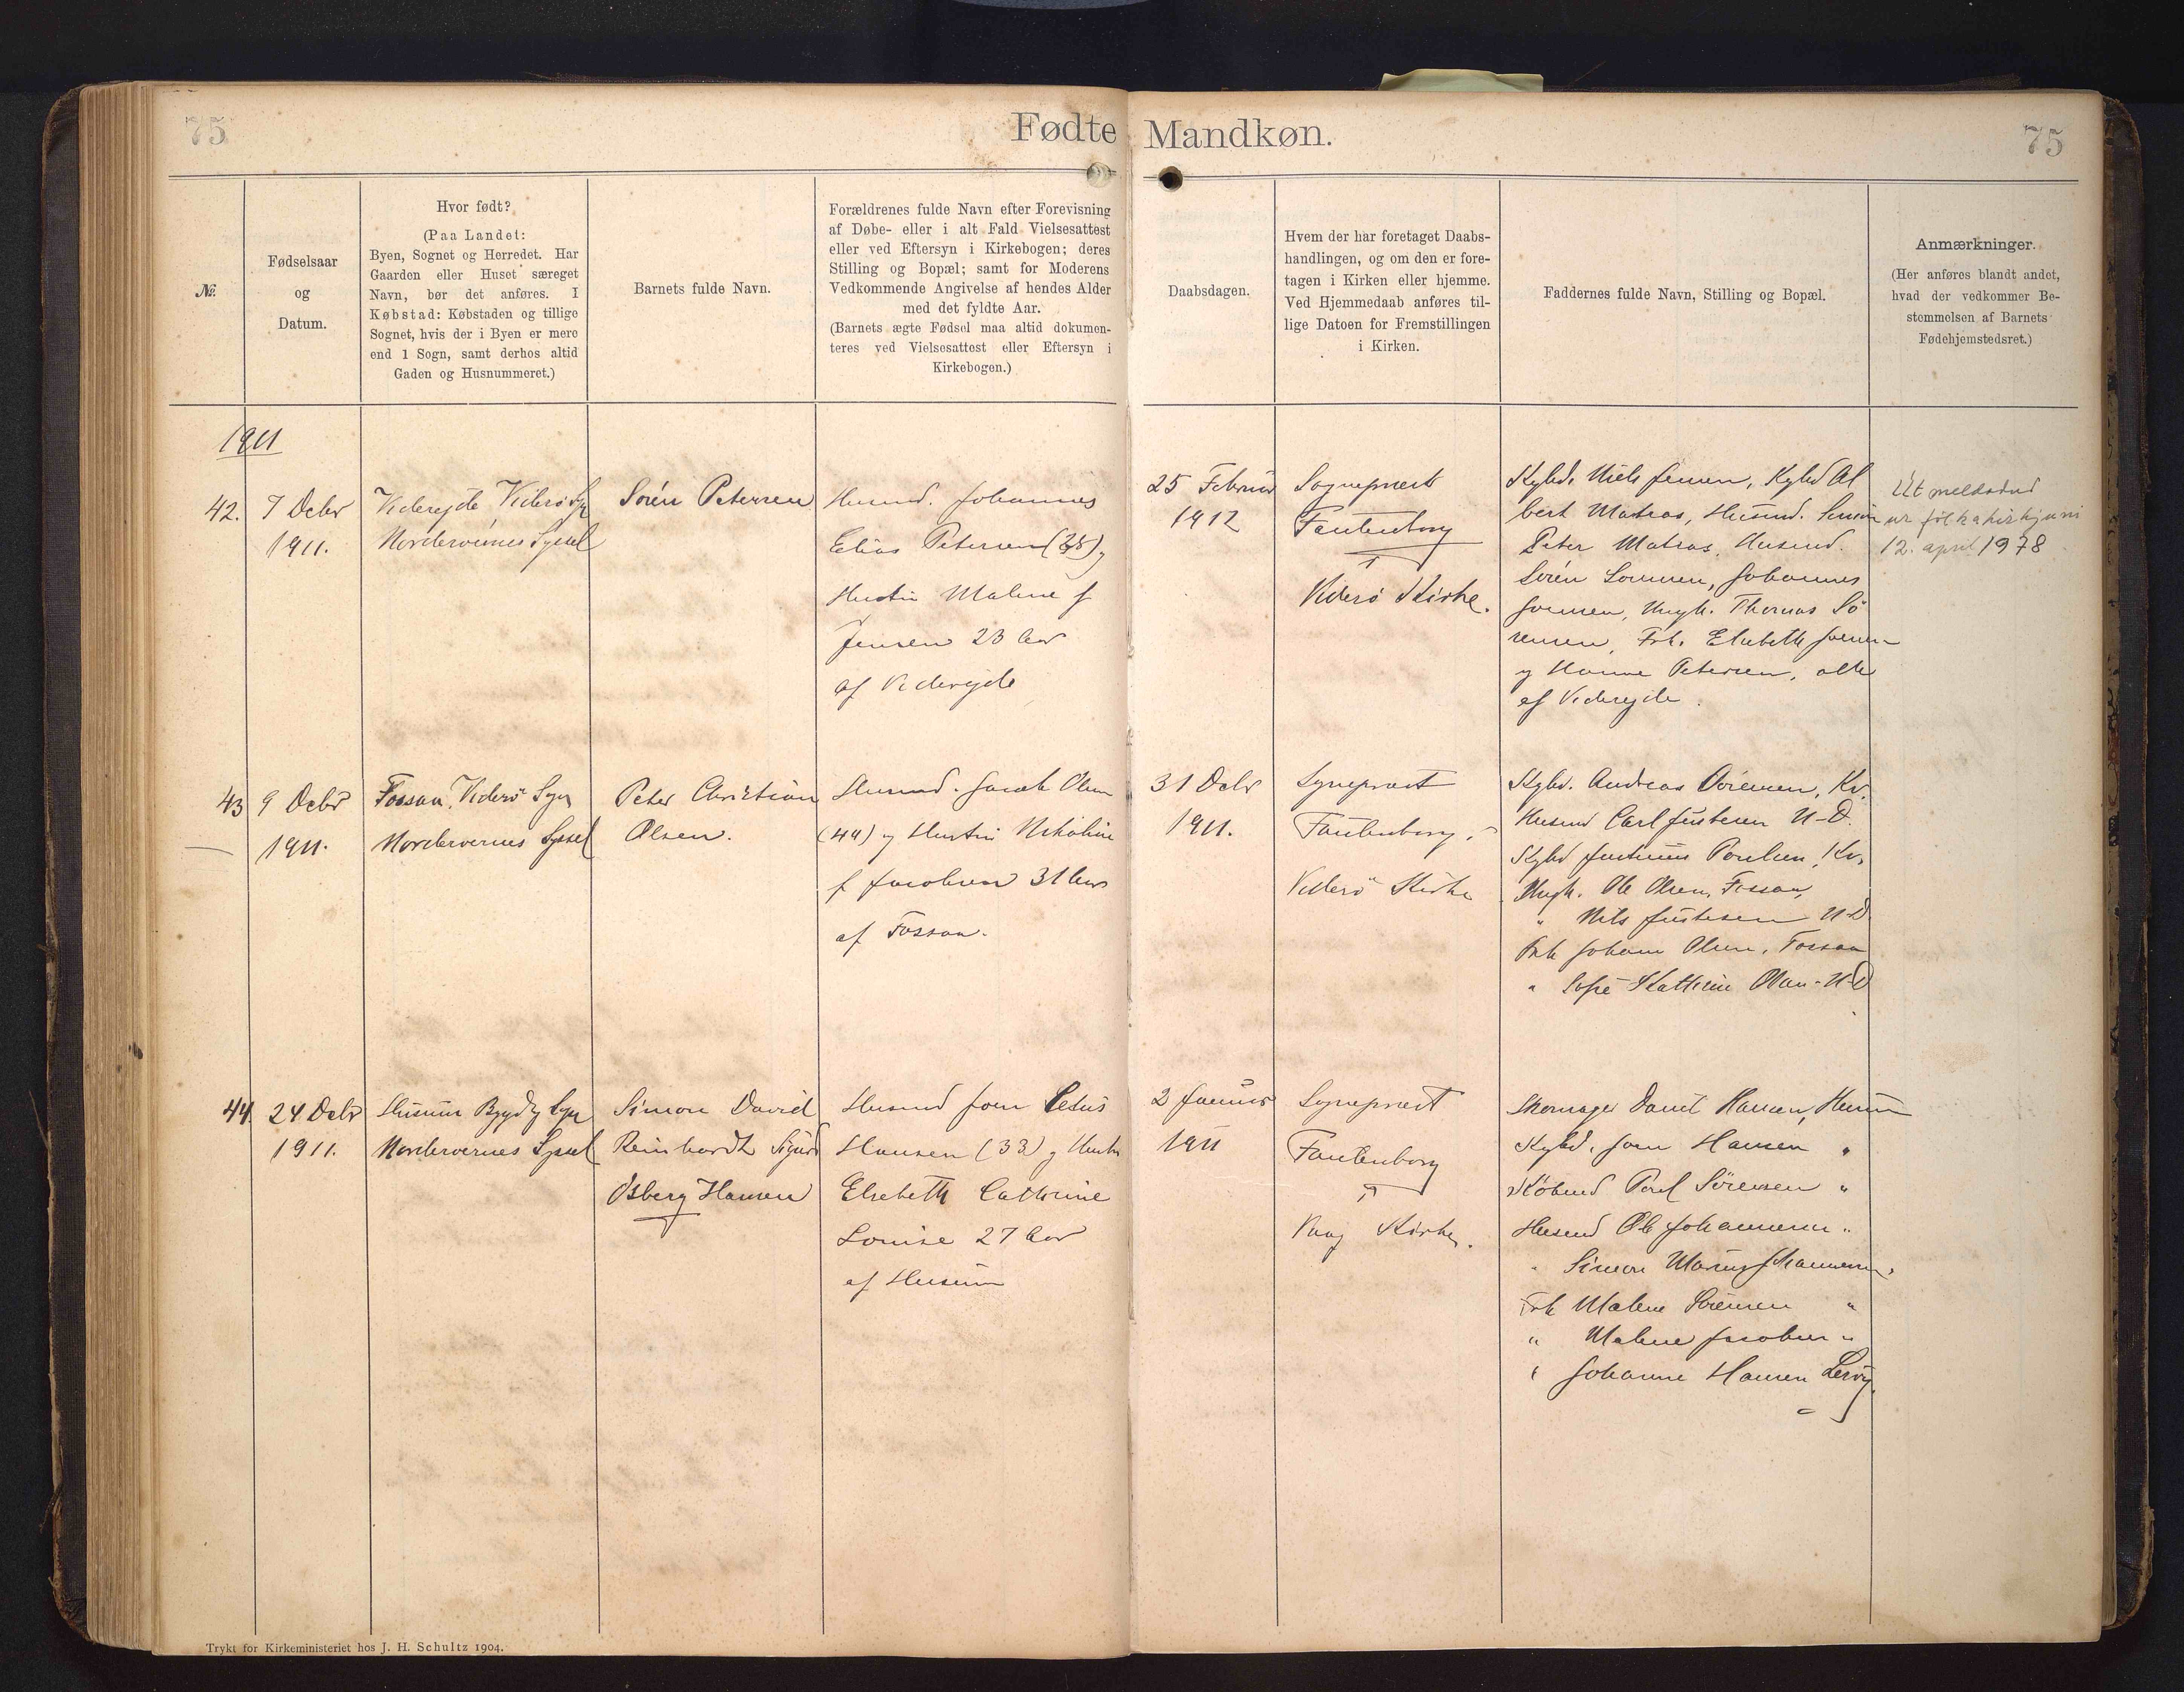 75
Fødte Mandkøn.
75
№.
Fødselsaar
og
Datum.
Hvor født?
(Paa Landet:
Byen, Sognet og Herredet. Har
Gaarden eller Huset særeget
Navn, bør det anføres. I
Købstad: Købstaden og tillige
Sognet, hvis der i Byen er mere
end 1 Sogn, samt derhos altid
Gaden og Husnummeret.)
Barnets fulde Navn.
Forældrenes fulde Navn efter Forevisning
af Døbe- eller i alt Fald Vielsesattest
eller ved Eftersyn i Kirkebogen; deres
Stilling og Bopæl; samt for Moderens
Vedkommende Angivelse af hendes Alder
med det fyldte Aar.
(Barnets ægte Fødsel maa altid dokumen-
teres ved Vielsesattest eller Eftersyn i
Kirkebogen.)
Daabsdagen.
Hvem der har foretaget Daabs-
handlingen, og om den er fore-
tagen i Kirken eller hjemme.
Ved Hjemmedaab anføres til-
lige Datoen for Fremstillingen
i Kirken.
Faddernes fulde Navn, Stilling og Bopæl.
Anmærkninger.
(Her anføres blandt andet,
hvad der vedkommer Be-
stemmelsen af Barnets
Fødehjemstedsret.)
1911
42.
7 Debr
1911.
Viderejde Viderø Sgn
Norderøernes Syssel
Sørén Petersen
Husmd. Johannes
Elias Petersen (28) og
Hustru Malene f
Jensen 23 Aar
af Viderejde
25 Februar
1912
Sognepræst
Faulenborg
Viderø Kirke.
Kgbd. Niels Jensen, Kgbd Al
bert Matras, Husmd. Simon
Peter Matras, Husmd.
Sørén Sørensen, Johannes
Joensen, Ungk. Thomas Sø
rensen, Frk. Elsebeth Joensen
og Hanne Petersen, alle
af Viderejde.
Útmeldadur
úr fólkakirkjuni
12. april 1978
43
9 Debr
1911.
Fossaa, Viderø Sogn
Norderøernes Syssel
Peter Christian
Olsen.
Husmd. Jacob Olsen
(44) og Hustru Nikoline
f Jacobsen 31 Aar
af Fossaa.
31 Debr
1911.
Sognepræst
Faulenborg.
Viderø Kirke
Kgbd. Andreas Sørensen, Kv.
Husmd Carl Justesen N-D.
Kgbd Justinus Poulsen, Kv.
Ungk. Ole Olsen, Fossaa,
" Nils Justesen N-D
Frk Johanne Olsen, Fossaa
" Sofie Kathrine Olsen - N-D
44
24 Debr
1911.
Husum Bygd og Sogn
Norderøernes Syssel
Simon David
Reinhardt Sigurd
Osberg Hansen
Husmd Joen Petur
Hansen (33) og Hustru
Elsebeth Cathrine
Louise 27 Aar
af Husum
2 Januar
1911
Sognepræst
Faulenborg
Vaag Kirke.
Skomager David Hansen, Husum
Kgbd. Joen Hansen "
Købmd Poul Sørensen "
Husmd Ole Johannesen "
" Simon Marius Johannesen "
Frk Malene Sørensen "
" Malene Jacobsen "
" Johanne Hansen Lervig.
Trykt for Kirkeministeriet hos J. H. Schultz 1904.